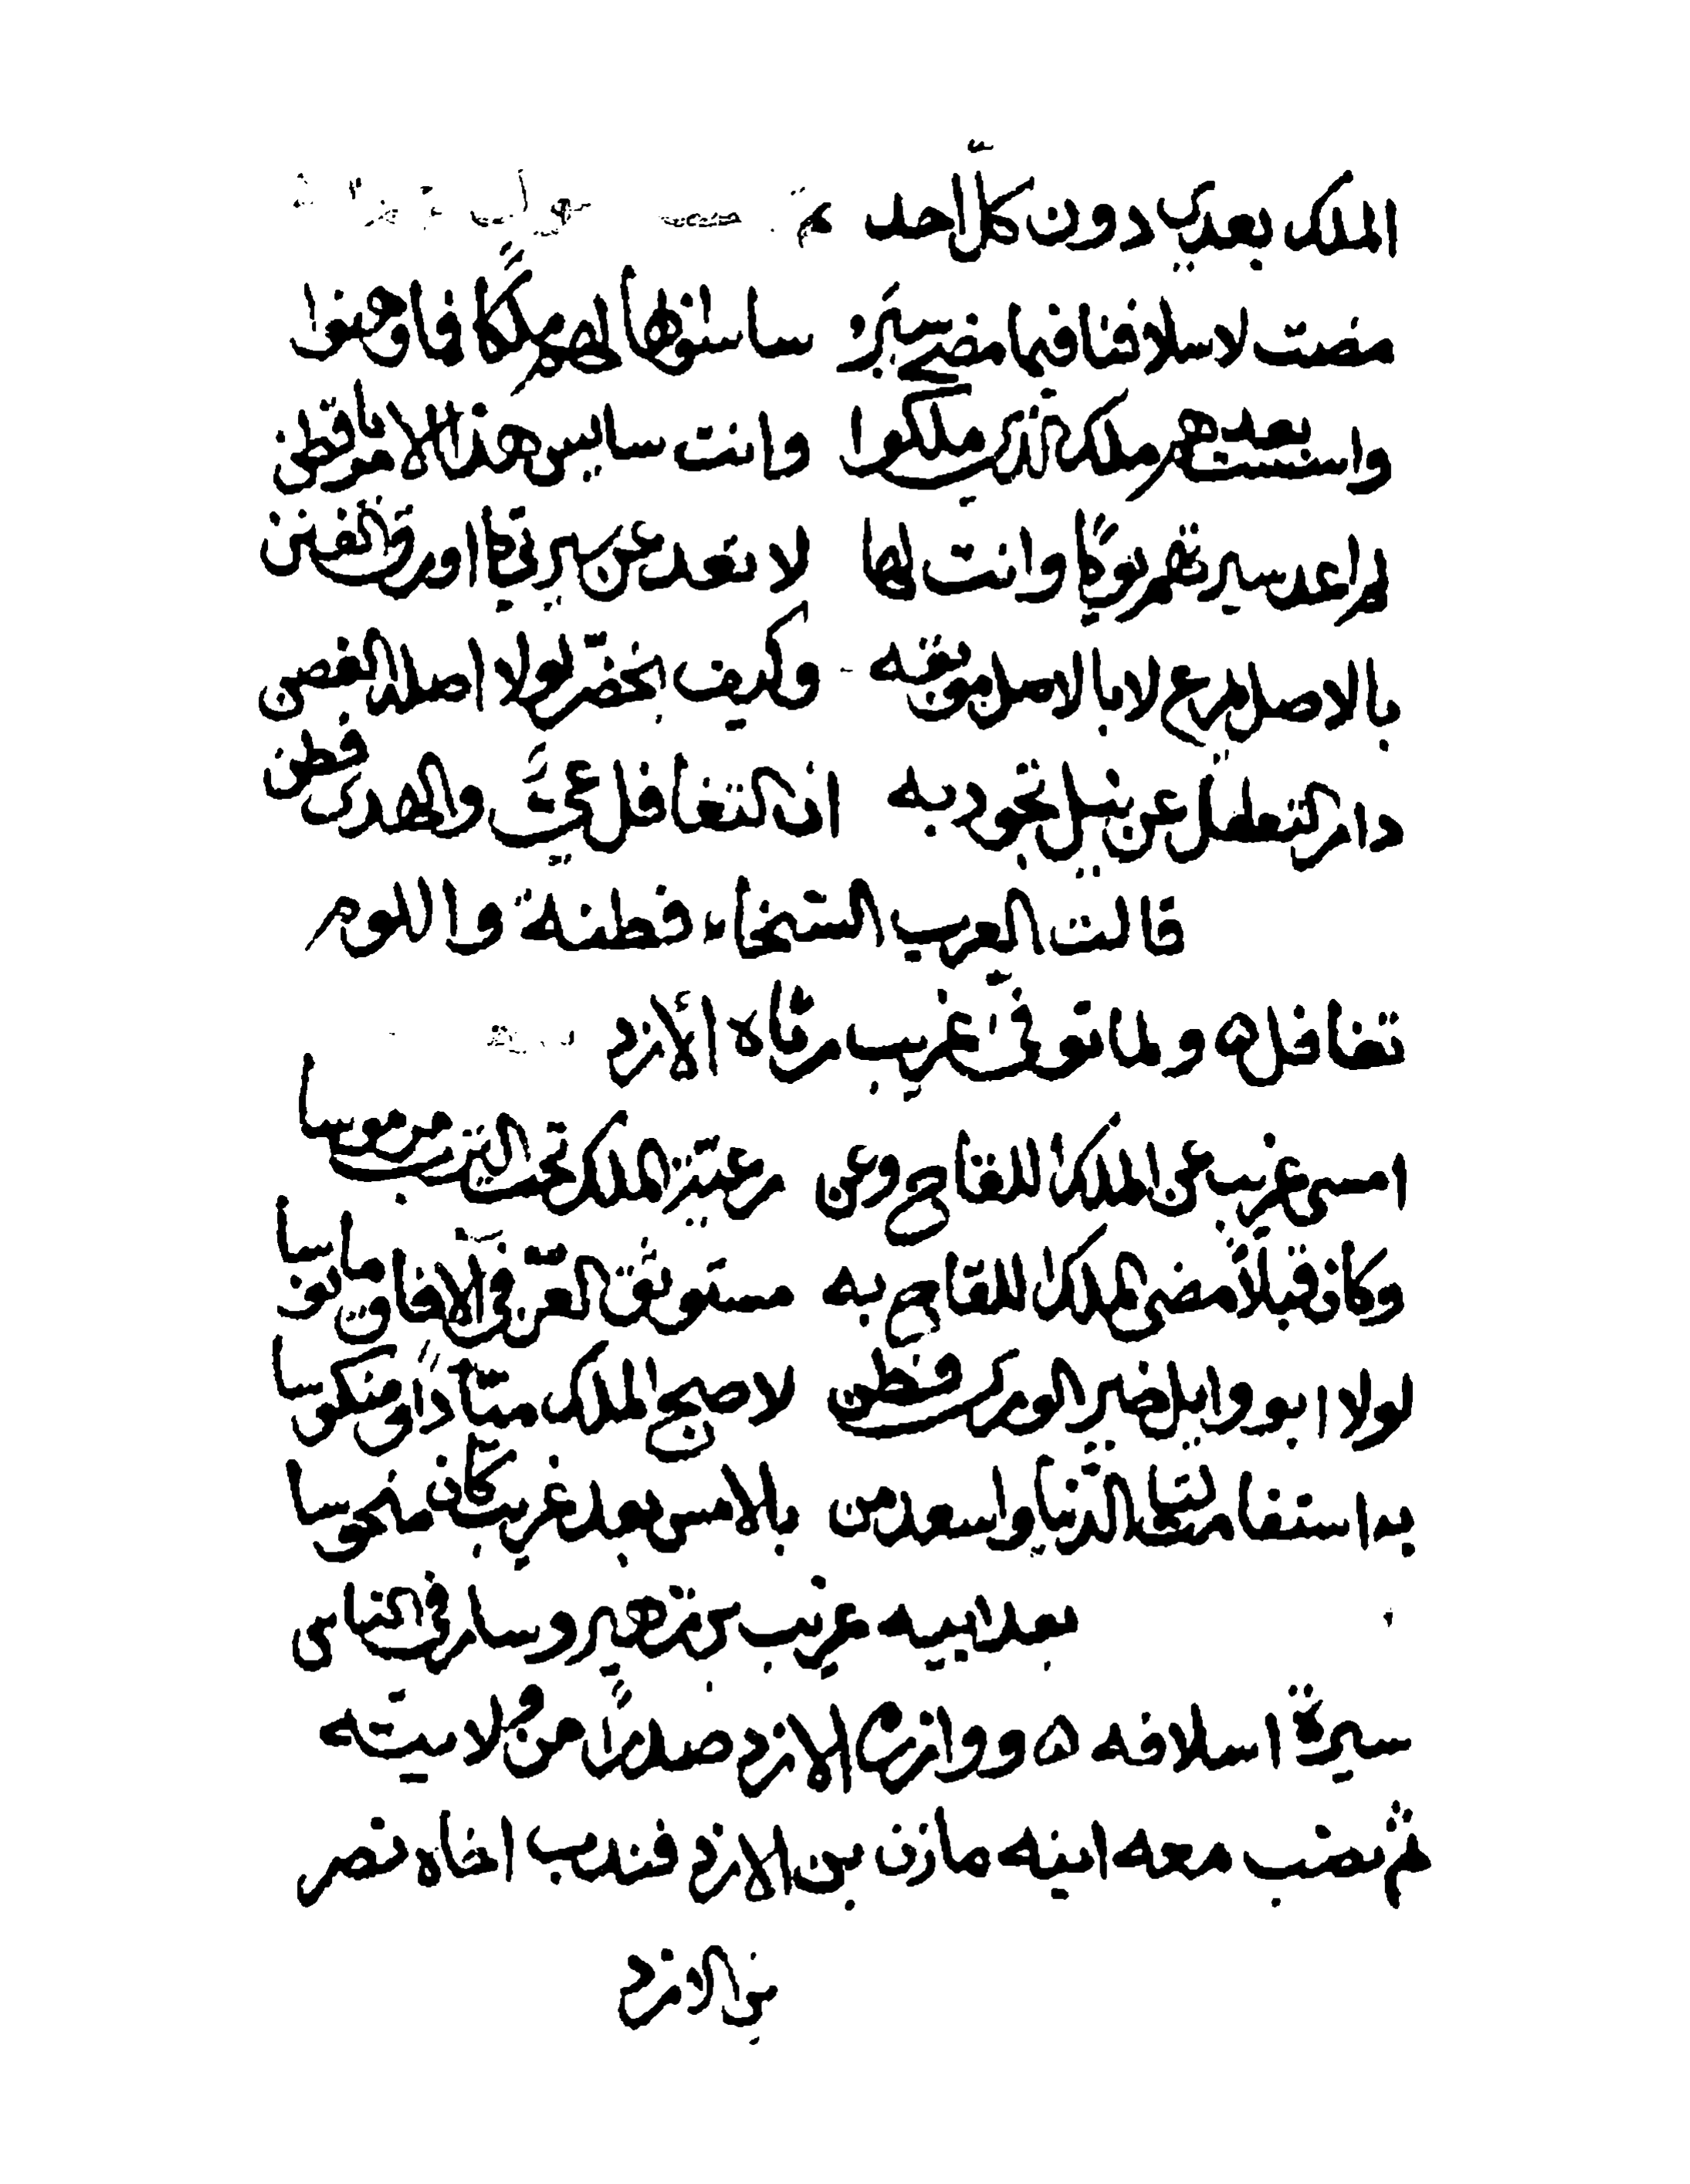 الملك بعدي دون كل احد
مضت لاسلافنا فيما مضى سير ساسوا بها لهم ملكا فما وهنوا
واسست بعدهم ملك الذي ملكوا وانت سايس هذا الامر يا قطن
لم اعد سيرتهم يوما وانت لها لا تعد عن سيرتي ما اورق الفنن
بالاصل فرع لا بالاصل مونقه وكيف يخضر لولا اصله الغصن
دار التغافل عن نيل تجود به ان التغافل عي والهدى فطن
قالت العرب السخاء فطنة واللوم
تغافل ٥ ولما توفى غريب رثاه الازد
امسى غريب عن الملك اللقاح وعن رعية الملك تحت الترب مرموسا
وكان قبلا مضى الملك اللقاح به مستوثق العز في الافاق مانوسا
لولا ابو وايل خير الورى قطن لاصبح الملك منادا ومنكوسا
به استقامت لنا الدنيا واسعد من بالامس بعد غريب كان منحوسا
بعد ابيه غريب بن زهير وسار في الناس
سيرة اسلافه ٥ ووازره الازد صدرا من ولايته
ثم نصب معه ابنه مازن بن الازد فندب اخاه نصر
بن الازد